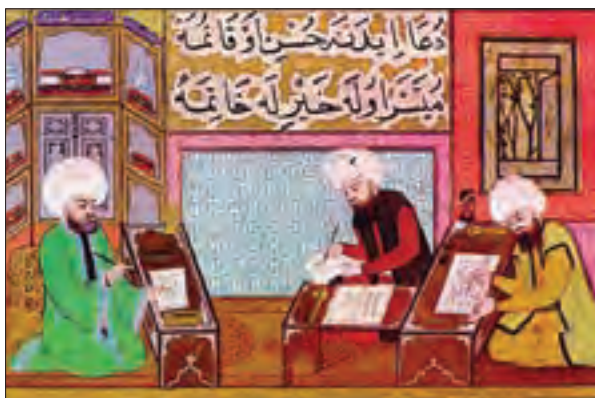 دُعَا اِيدَنَه حُسْنِ اَوْقَاتمَه
مُيَسَّرْ اوُلَه خَيْرِلَه خَاتِمَه